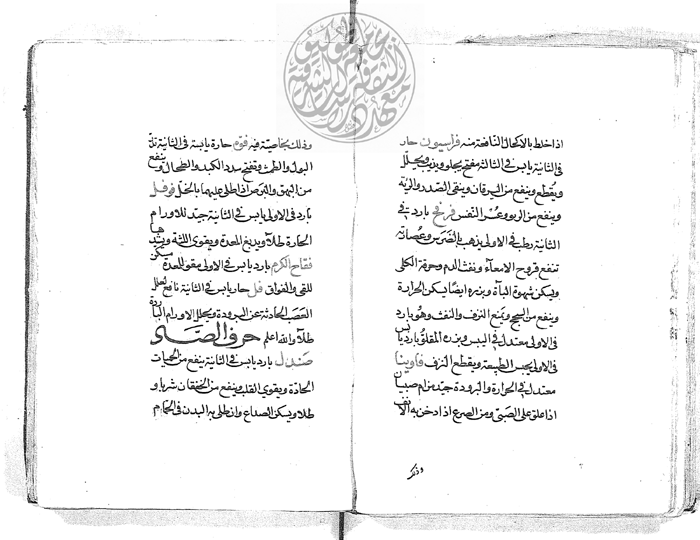 اذا خلط بالاكحال النافعة منه فراسيون حار
فى الثانية يابس فى الثالثة مفتح يجلو ويذيب ويحلل
ويقطع وينفع من اليرقان وينقى الصدر والرية
وينفع من الربو وعسر النفس فرفخ بارد فى
الثانية رطب فى الاولى يذهب بالضرس وعصارته
تنفع قروح الامعاء ونفث الدم وحرقة الكلى
ويسكن شهوة الباه وبزره ايضا يسكن الحرارة
وينفع من السحج ويمنع النزف والنفث وهو بارد
فى الاولى معتدل فى اليبس وبزره المقلو بارد يابس
فى الاولى يحبس الطبيعة ويقطع النزف فاوينا
معتدل فى الحرارة والبرودة جيد من ام صبيان
اذا علق على الصبى ومن الصرع اذا دخن به الانف
وذلك بخاصية فيه فوة حارة يابسة فى الثانية
البول والطمث وتفتح سدد الكبد والطحال وينفع
من البهق والبرص اذا طلى عليهما بالخل فوفل
بارد فى الاولى يابس فى الثانية جيد للاورام
الحارة طلاء ويدبغ المعدة ويقوى اللثة ويشدها
فقاح الكرم بارد يابس فى الاولى مقو للمعدة
للقى والفواق فل حار يابس فى الثانية نافع لعلل
العصب الحادثة عن البرودة ويحلل الاورام الباردة
طلاء والله اعلم حرف الصاد
صندل بارد يابس فى الثانية ينفع من الحميات
الحادة ويقوى القلب وينفع من الخفقان شربا و
طلا ويسكن الصداع وان طلى به البدن فى الحمام